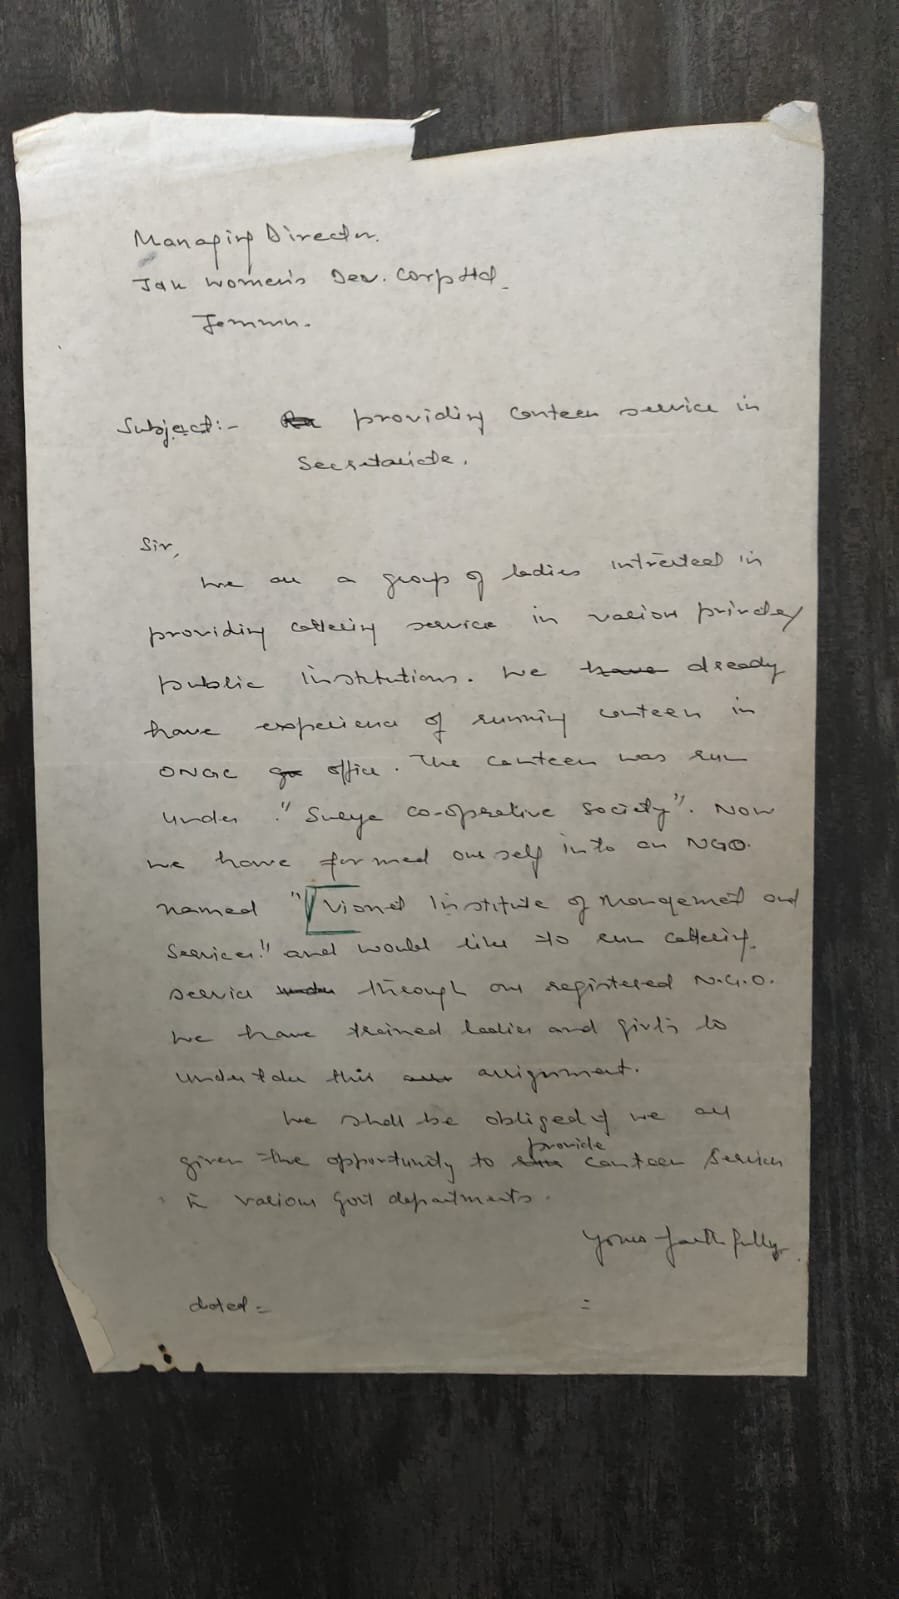 Managing Director.
J&K Women's Dev. Corp Ltd.
Jammu.
Subject:- providing Canteen service in
Secretariate.
Sir,
We are a group of ladies intrested in
providing catering service in various private/
public institutions. We have already
have experience of running canteen in
ONGC office. The canteen was run
under "Surya co-operative Society". Now
we have formed our self into an NGO.
named " Institute of Management and
Services" and would like to run catering
service under through our registered N.G.O.
We have trained ladies and girls to
undertake this assignment.
We shall be obliged if we are
given the opportunity to provide canteen service
in various Govt departments.
Yours faithfully
dated =
=